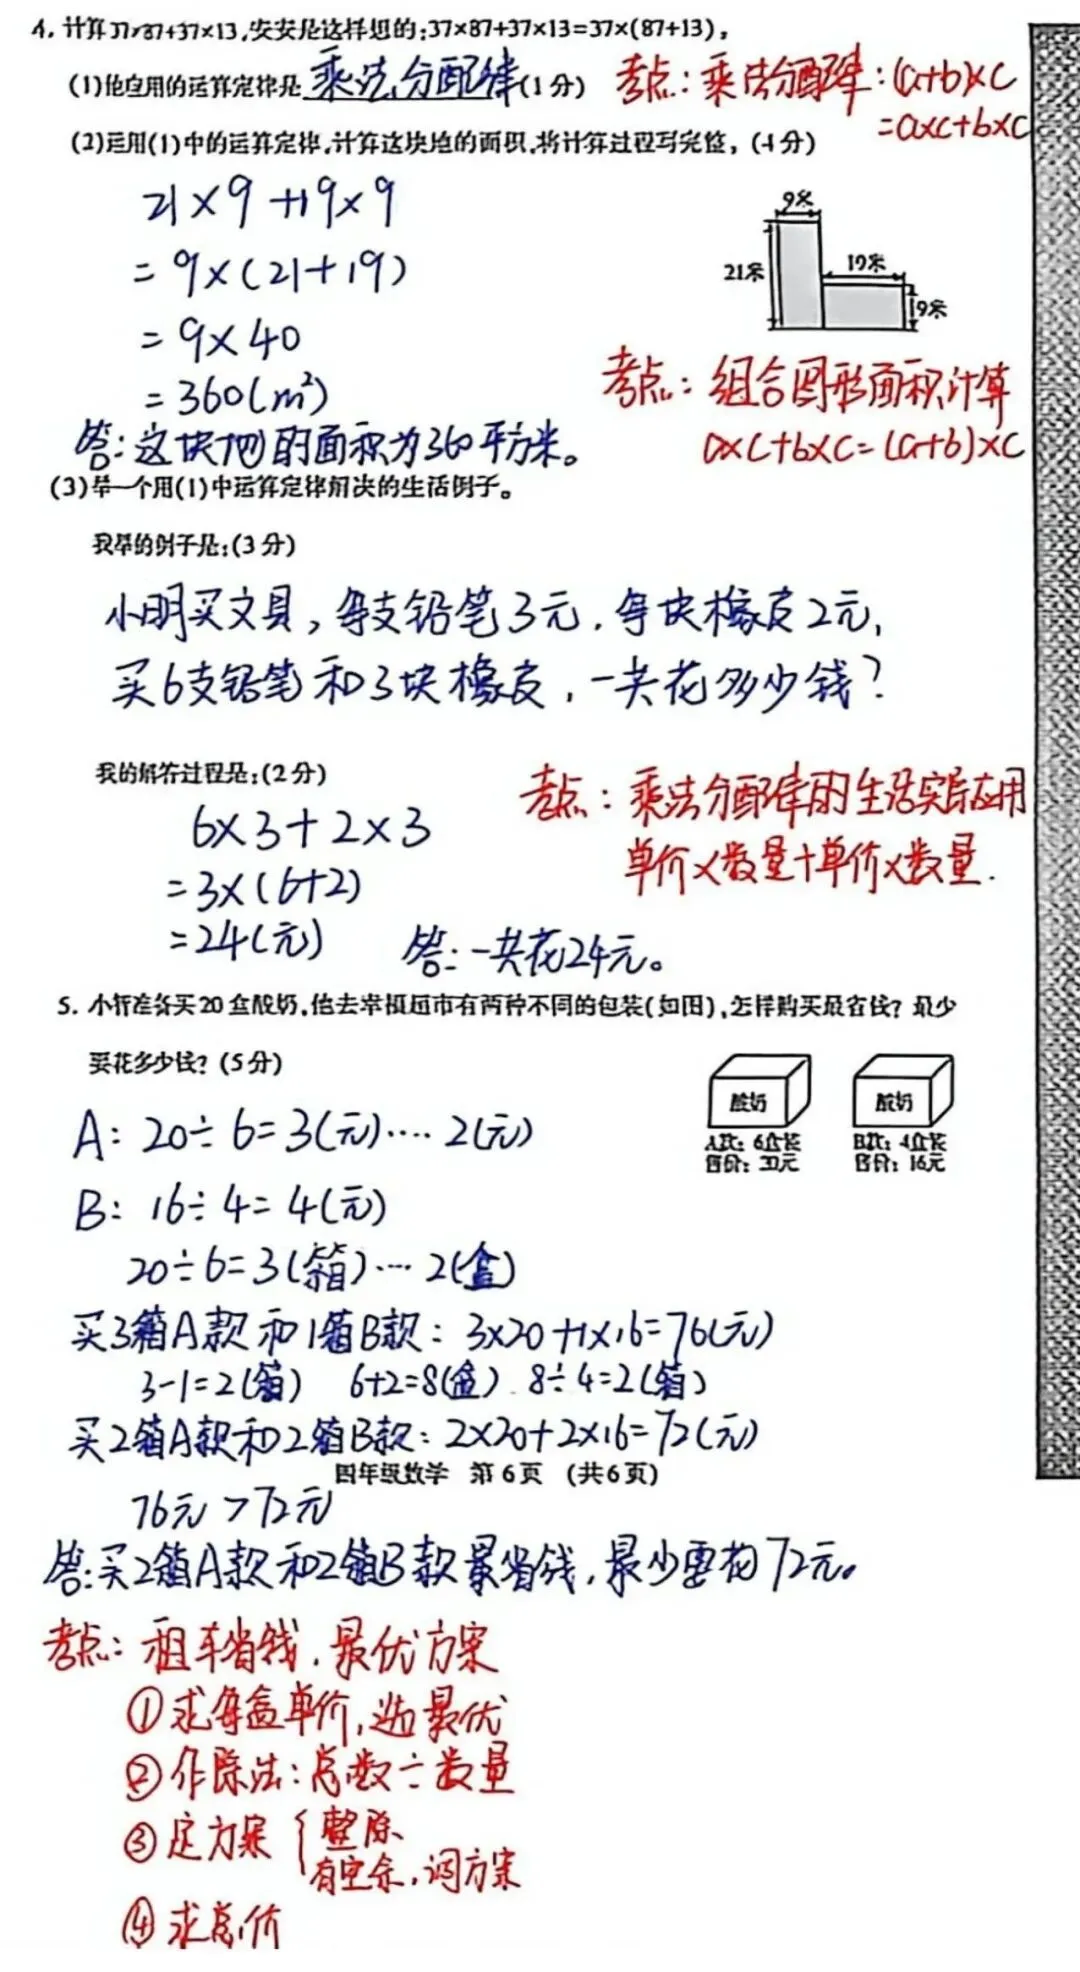 4. 计算37×87+37×13,安安是这样想的:37×87+37×13=37×(87+13)。
(1)他应用的运算定律是 乘法分配律(1分)
考点：乘法分配律：(a+b)×c
=a×c+b×c
(2)运用(1)中的运算定律,计算这块地的面积,将计算过程写完整。(4分)
21×9+19×9
=9×(21+19)
=9×40
=360(m²)
答:这块地的面积为360平方米。
9米
21米
19米
9米
考点：组合图形面积计算
a×c+b×c=(a+b)×c
(3)举一个用(1)中运算定律解决的生活例子。
我举的例子是:(3分)
小明买文具,每支铅笔3元,每块橡皮2元,
买6支铅笔和3块橡皮,一共花多少钱?
我的解答过程是:(2分)
6×3+2×3
=3×(6+2)
=24(元)
答:一共花24元。
考点：乘法分配律的生活实际应用
单价×数量+单价×数量.
5. 小智准备买20盒酸奶,他去幸福超市有两种不同的包装(如图),怎样购买最省钱?最少
要花多少钱?(5分)
酸奶
A款: 6盒装
售价: 20元
酸奶
B款: 4盒装
售价: 16元
A: 20÷6=3(元)....2(元)
B: 16÷4=4(元)
20÷6=3(箱)....2(盒)
买3箱A款和1箱B款: 3×20+1×16=76(元)
3-1=2(箱) 6+2=8(盒) 8÷4=2(箱)
买2箱A款和2箱B款: 2×20+2×16=72(元)
四年级数学 第6页 (共6页)
76元>72元
答:买2箱A款和2箱B款最省钱,最少要花72元。
考点: 租车省钱,最优方案
①求每盒单价,选最优
②作除法:总数÷数量
③定方案 { 整除
有空余,调方案
④求总价